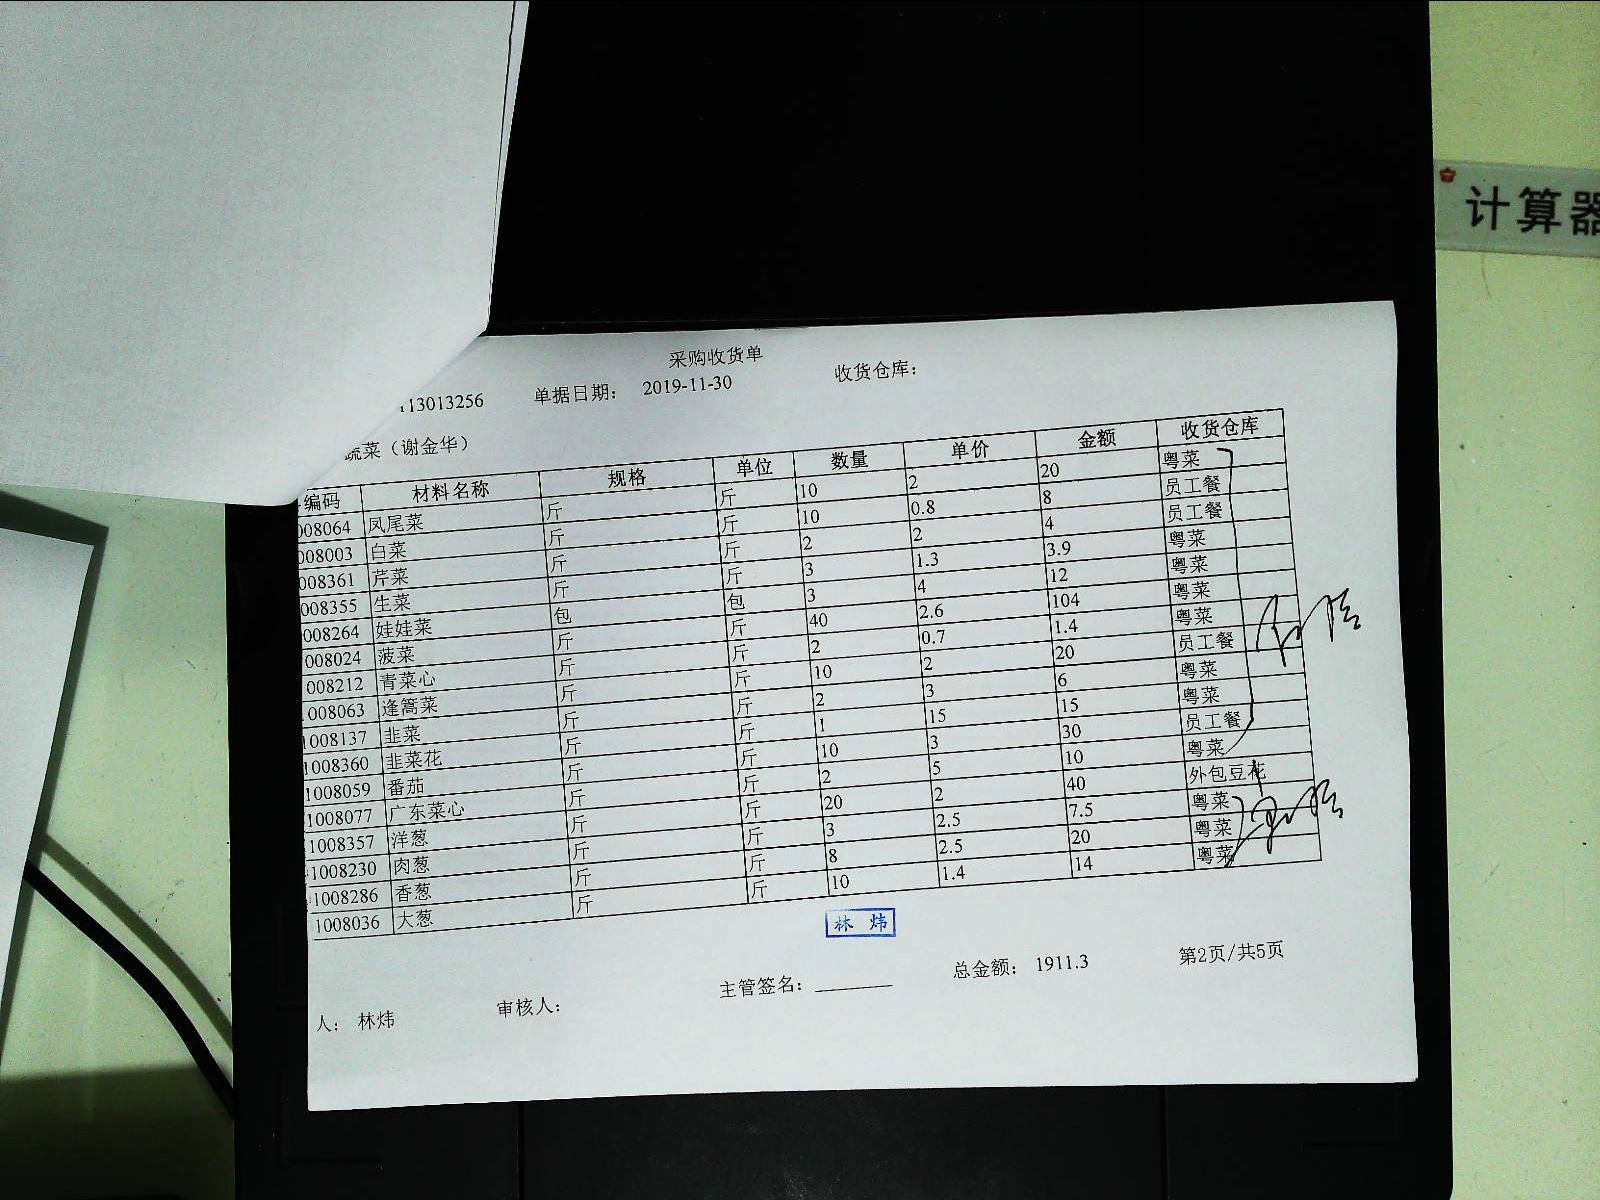 计算器
采购收货单
113013256 单据日期： 2019-11-30 收货仓库：
蔬菜（谢金华）
编码 材料名称 规格 单位 数量 单价 金额 收货仓库
008064 凤尾菜 斤 斤 10 2 20 粤菜
008003 白菜 斤 斤 10 0.8 8 员工餐
008361 芹菜 斤 斤 2 2 4 员工餐
008355 生菜 斤 斤 3 1.3 3.9 粤菜
008264 娃娃菜 包 包 3 4 12 粤菜
008024 菠菜 斤 斤 40 2.6 104 粤菜
008212 青菜心 斤 斤 2 0.7 1.4 粤菜
008063 逢篙菜 斤 斤 10 2 20 员工餐
1008137 韭菜 斤 斤 2 3 6 粤菜
1008360 韭菜花 斤 斤 1 15 15 粤菜
1008059 番茄 斤 斤 10 3 30 员工餐
1008077 广东菜心 斤 斤 2 5 10 粤菜
1008357 洋葱 斤 斤 20 2 40 外包豆花
1008230 肉葱 斤 斤 3 2.5 7.5 粤菜
1008286 香葱 斤 斤 8 2.5 20 粤菜
1008036 大葱 斤 斤 10 1.4 14 粤菜
林 炜
人： 林炜 审核人： 主管签名： 总金额： 1911.3 第2页/共5页